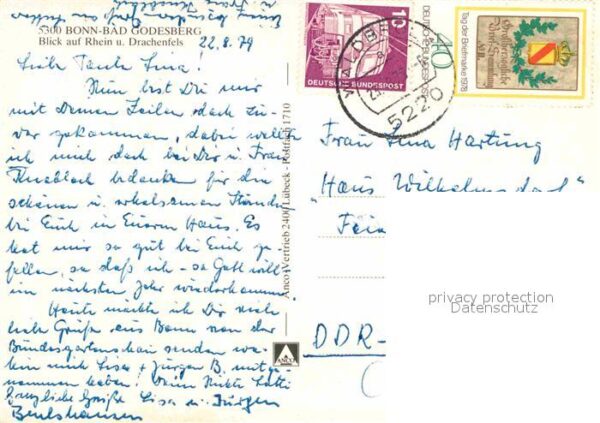 5300 BONN-BAD GODESBERG
Blick auf Rhein u. Drachenfels
22.8.79
Liebe Tante Lina.
Nun bist Du mir
mit Deinen Zeilen doch zu-
vor gekommen, dabei wollte
ich mich doch bei Dir u. Frau
bedanken für die
schönen u. erholsamen Stunden
bei Euch in Eurem Haus. Es
hat mir so gut bei Euch ge-
fallen, so daß ich - so Gott will
im nächsten Jahr wiederkomme.
Heute möchte ich Dir viele
liebe Grüße aus Bonn von der
Bundesgartenschau senden wo-
hin mich Lisa + Jürgen B. mitge-
nommen haben. Deine Nichte Lotti
Herzliche Grüße Lisa u. Jürgen
Anco-Vertrieb 2400 Lübeck - Postfach 1710
ANCO
10
DEUTSCHE BUNDESPOST
5220
DEUTSCHE BUNDESPOST
40
Tag der Briefmarke 1978
Frau Lina Hartung
"Haus Wilhelms
DDR-
privacy protection
Datenschutz